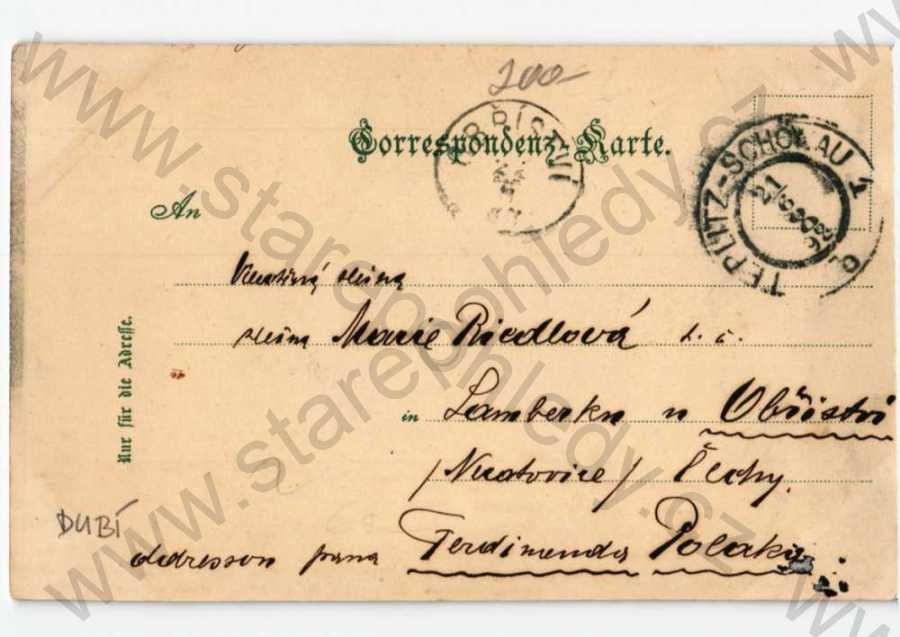 200-
Correspondenz-Karte.
OBŘÍSTVÍ
TEPLITZ-SCHÖNAU 1
An
slečna
slečna Marie Riedlová t. č.
in Lamberku u Obřiství
/ / Čechy.
Nur für die Adresse.
DUBÍ
adresson pana Ferdinanda Polaka
www.starepohledy.cz